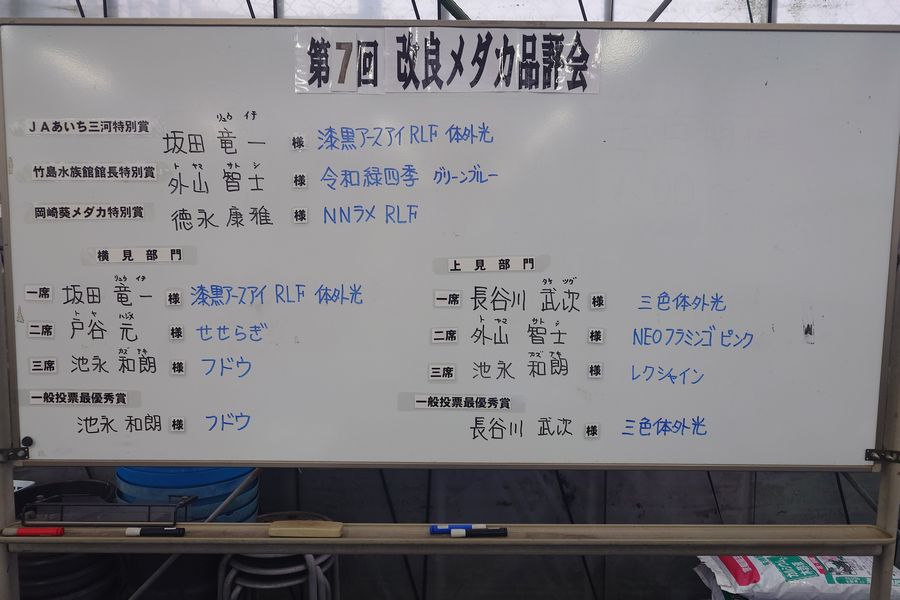 第7回 改良メダカ品評会
リュウ イチ
JAあいち三河特別賞 坂田 竜一 様 漆黒アースアイ RLF 体外光
トヤマ サトシ
竹島水族館館長特別賞 外山 智士 様 令和緑四季 グリーンブルー
岡崎葵メダカ特別賞 徳永 康雅 様 NNラメ RLF
横見部門
リュウ イチ
一席 坂田 竜一 様 漆黒アースアイ RLF 体外光
トヤ ハジメ
二席 戸谷 元 様 せせらぎ
カズ アキ
三席 池永 和朗 様 フドウ
一般投票最優秀賞
池永 和朗 様 フドウ
上見部門
タケ ツグ
一席 長谷川 武次 様 三色体外光
トヤマ サトシ
二席 外山 智士 様 NEOフラミンゴ ピンク
カズ アキ
三席 池永 和朗 様 レクシャイン
一般投票最優秀賞
長谷川 武次 様 三色体外光